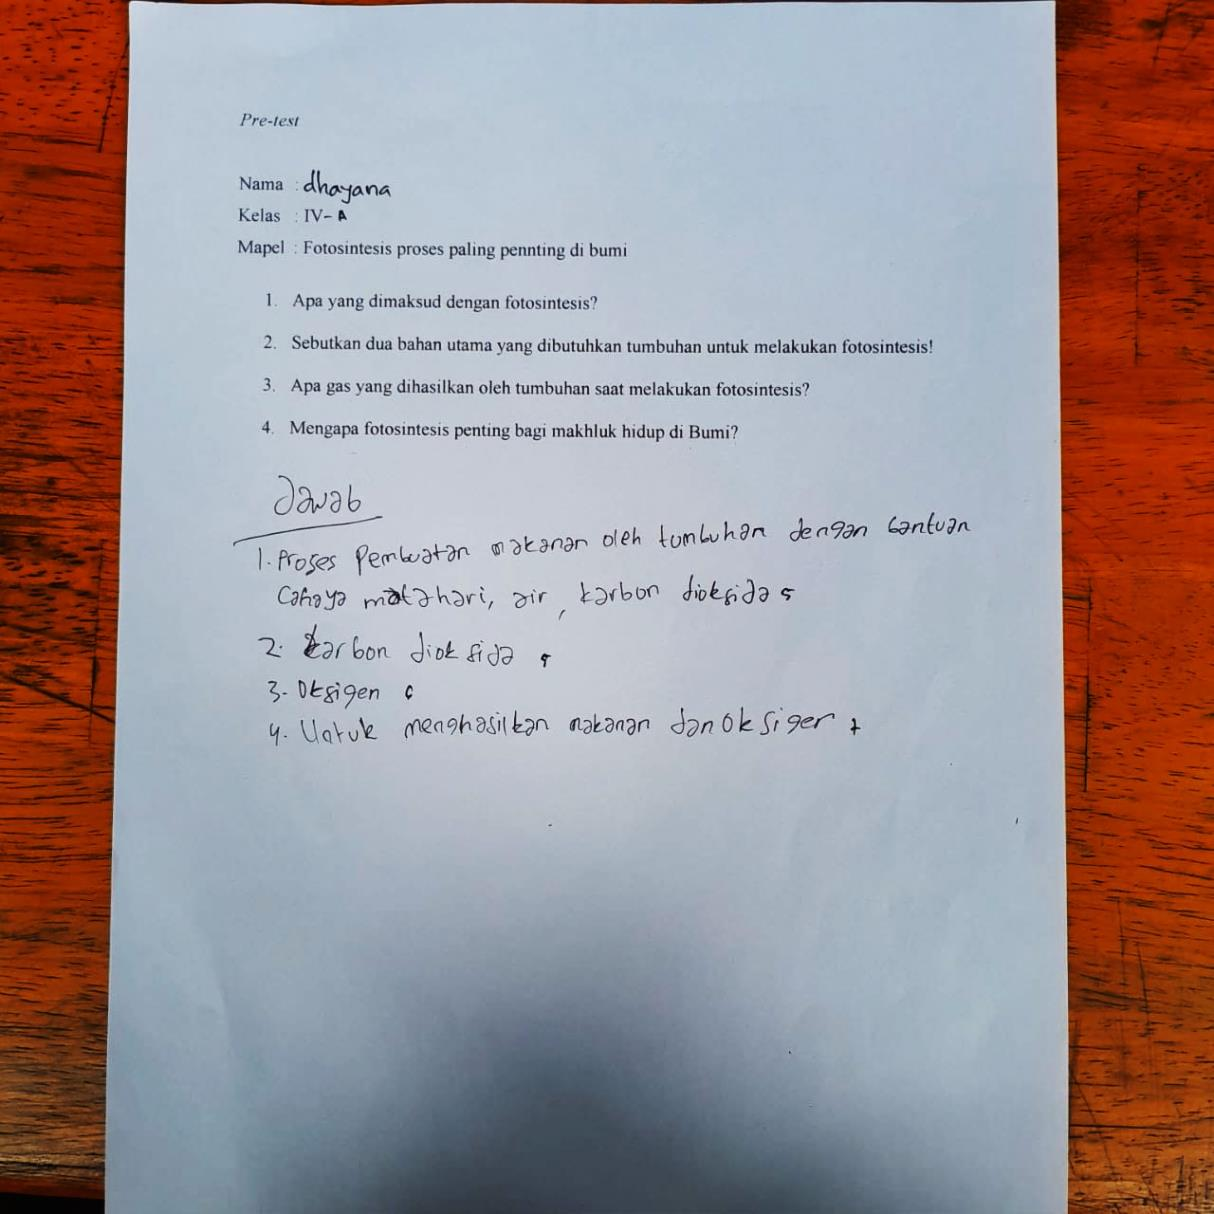 Pre-test
Nama : dhayana
Kelas : IV- A
Mapel : Fotosintesis proses paling pennting di bumi
1. Apa yang dimaksud dengan fotosintesis?
2. Sebutkan dua bahan utama yang dibutuhkan tumbuhan untuk melakukan fotosintesis!
3. Apa gas yang dihasilkan oleh tumbuhan saat melakukan fotosintesis?
4. Mengapa fotosintesis penting bagi makhluk hidup di Bumi?
Jawab
1. Proses Pembuatan makanan oleh tumbuhan dengan bantuan
Cahaya matahari, air, karbon dioksida
2. karbon dioksida
3. Oksigen
4. Untuk menghasilkan makanan dan oksigen